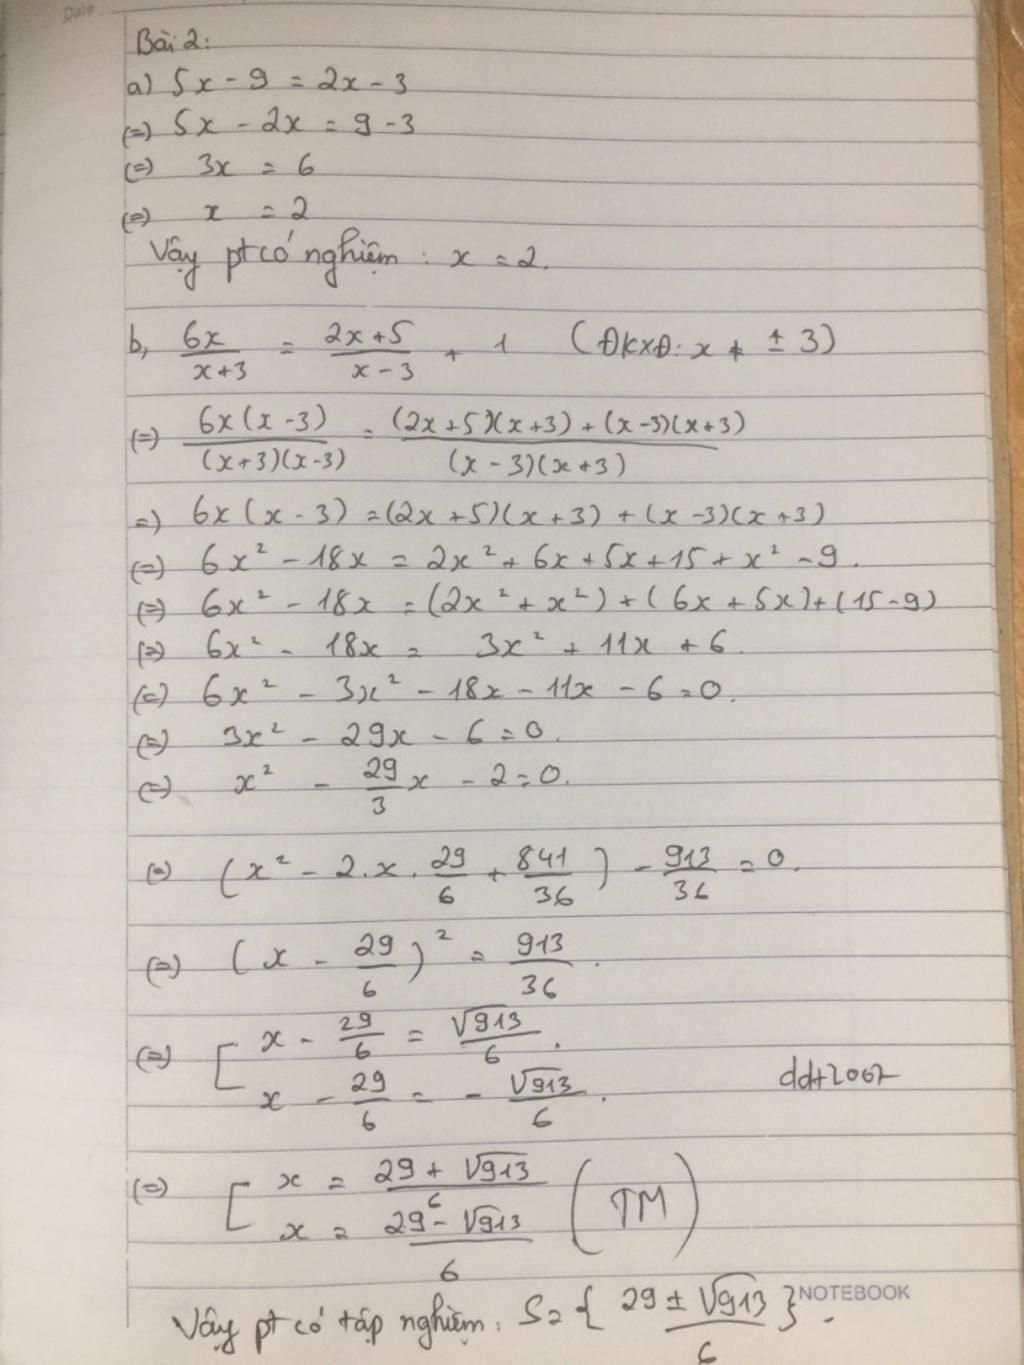 Date
Bài 2:
a) 5x - 9 = 2x - 3
(=) 5x - 2x = 9 - 3
(=) 3x = 6
(=) x = 2
Vậy pt có nghiệm : x = 2.
b, 6x/(x+3) = (2x+5)/(x-3) + 1 (ĐKXĐ: x ≠ ± 3)
(=) 6x(x-3)/((x+3)(x-3)) = ((2x+5)(x+3) + (x-3)(x+3))/((x-3)(x+3))
=) 6x(x-3) = (2x+5)(x+3) + (x-3)(x+3)
(=) 6x² - 18x = 2x² + 6x + 5x + 15 + x² - 9.
(=) 6x² - 18x = (2x² + x²) + (6x + 5x) + (15-9)
(=) 6x² - 18x = 3x² + 11x + 6.
(=) 6x² - 3x² - 18x - 11x - 6 = 0.
(=) 3x² - 29x - 6 = 0.
(=) x² - 29/3 x - 2 = 0.
(=) (x² - 2.x.29/6 + 841/36) - 913/36 = 0.
(=) (x - 29/6)² = 913/36.
(=) [ x - 29/6 = √913/6.
x - 29/6 = - √913/6.
ddt2007
(=) [ x = (29 + √913)/6
x = (29 - √913)/6 (TM)
NOTEBOOK
Vậy pt có tập nghiệm: S = { (29 ± √913)/6 }.